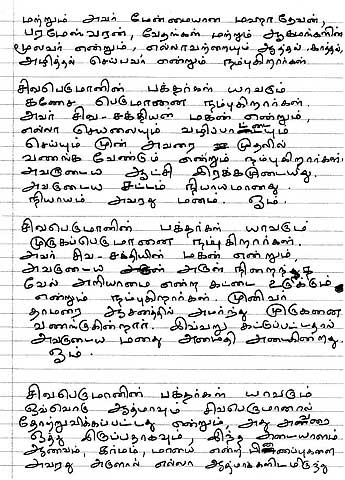 மற்றும் அவர் மேன்மையான மஹாதேவன்,
பரமேஸ்வரன், வேதங்கள் மற்றும் ஆகமங்களின்
மூலவர் என்றும், எல்லாவற்றையும் ஆக்தல், காத்தல்,
அழித்தல் செய்பவர் என்றும் நம்புகிறார்கள்.
சிவபெருமானின் பக்தர்கள் யாவரும்
கணேச பெருமானை நம்புகிறார்கள்.
அவர் சிவ-சக்தியின் மகன் என்றும்,
எல்லா செயலையும் வழிபாட்டையும்
செய்யும் முன் அவரை முதலில்
வணங்க வேண்டும் என்றும் நம்புகிறார்கள்.
அவருடைய ஆட்சி இரக்கமுடையது.
அவருடைய சட்டம் நியாயமானது.
நியாயம் அவரது மனம். ஓம்.
சிவபெருமானின் பக்தர்கள் யாவரும்
முருகப்பெருமானை நம்புகிறார்கள்.
அவர் சிவ-சக்தியின் மகன் என்றும்,
அவருடைய அருள் நிறைந்த
வேல் அறியாமை என்ற கட்டை உடுக்கும்
என்றும் நம்புகிறார்கள். முனிவர்
தாமரை ஆசனத்தில் அமர்ந்து முருகனை
வணங்குகின்றார். இவ்வாறு கட்டுப்பட்டதால்
அவருடைய மனது அமைதி அடைகின்றது.
ஓம்.
சிவபெருமானின் பக்தர்கள் யாவரும்
ஒவ்வொரு ஆத்மாவும் சிவபெருமானால்
தோற்றுவிக்கப்பட்டது என்றும், அது அவரை
ஒத்து இருப்பதாகவும், இந்த அடையாளம்
ஆணவம், கர்மம், மாயை என்ற பிணைப்புகளை
அவரது அருளால் எல்லா ஆத்மாக்களிடமிருந்து